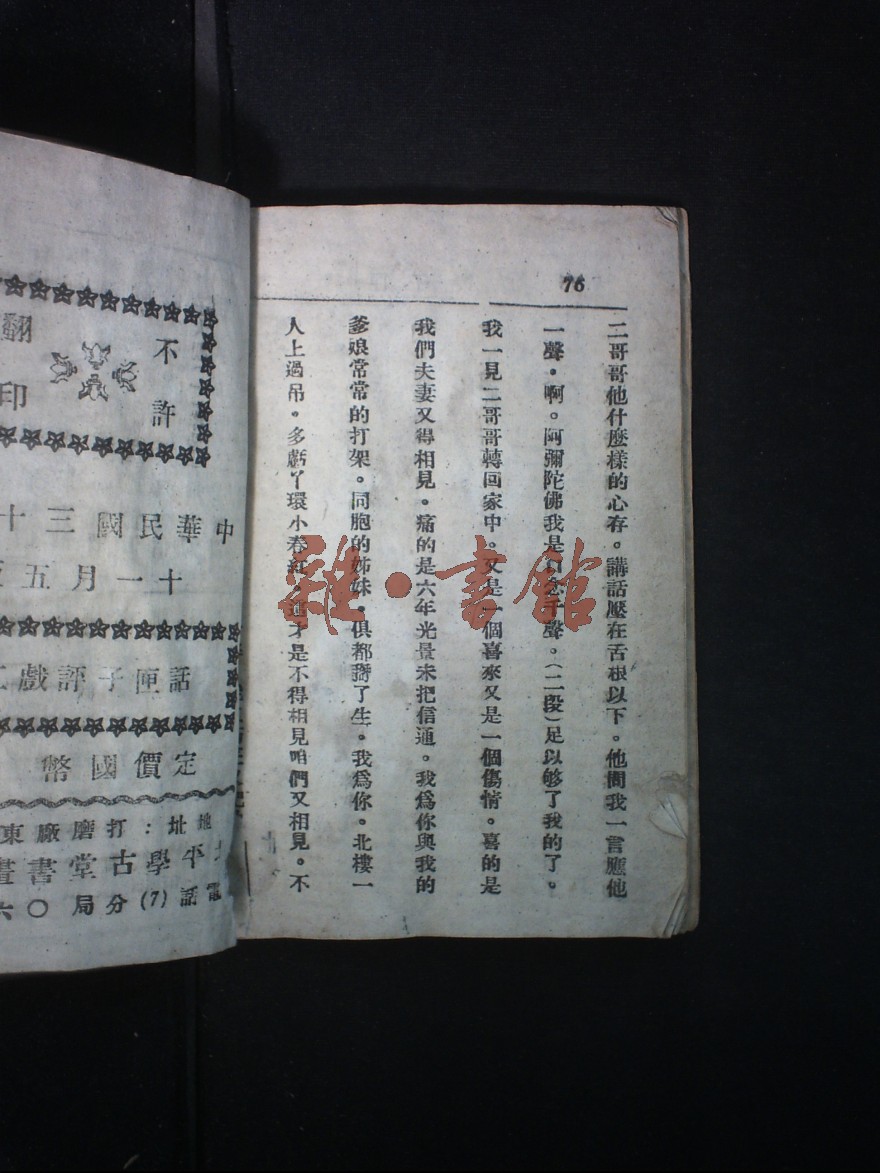 76
二哥哥他什麼樣的心存。講話壓在舌根以下。他問我一言應他
一聲。啊。阿彌陀佛我是口念千聲。(二段)足以够了我的了。
我一見二哥哥轉回家中。又是一個喜來又是一個傷情。喜的是
我們夫妻又得相見。痛的是六年光景未把信通。我爲你與我的
爹娘常常的打架。同胞的姊妹。俱都謅了生。我爲你。北樓一
人上過吊。多虧丫環小春紅。這才是不得相見咱們又相見。不
雜·書館
不許
翻印
中華民國三十
十一月五
話匣子評戲
定價國幣
地址:打磨廠東
平學古堂書
電話(7)分局〇六